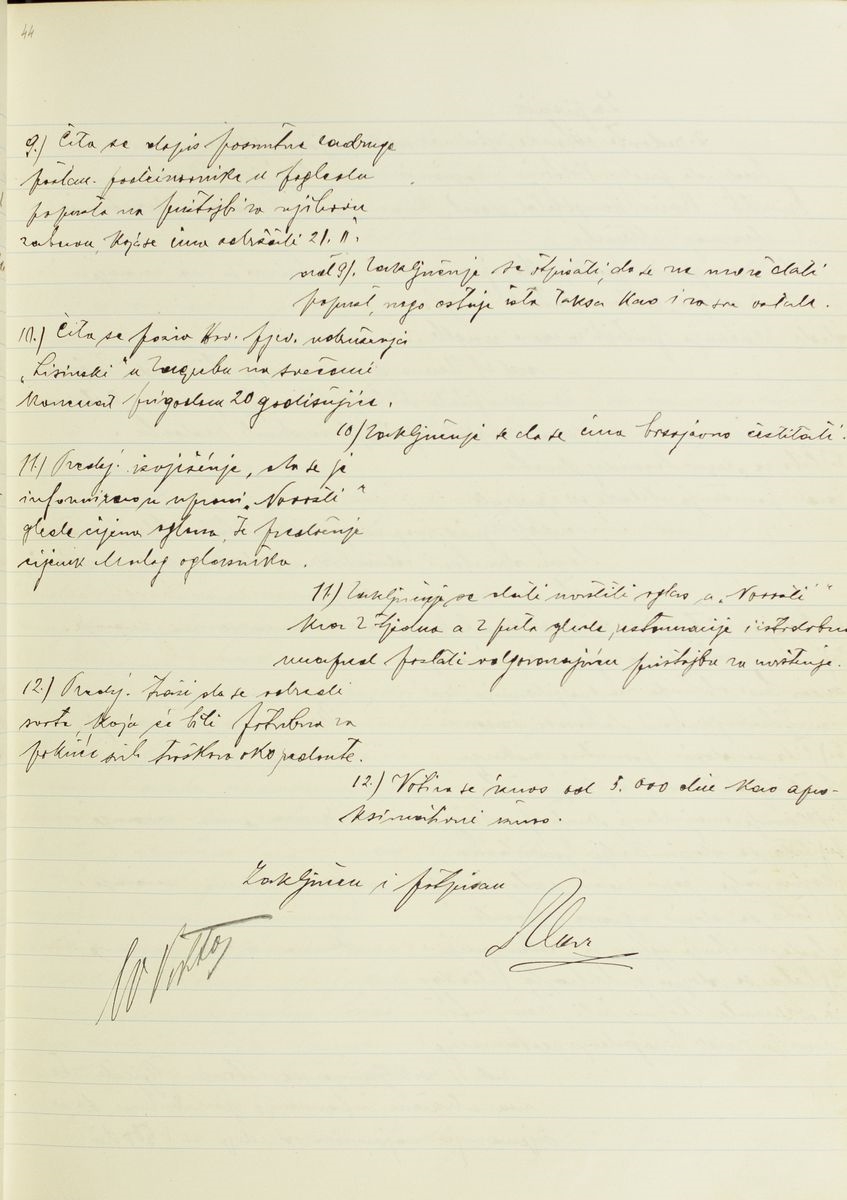 44
9.) Čita se dopis posmrtne zadruge
poštan. podčinovnika u pogledu
popusta na pristojbi za njihovu
zabavu, koja se ima održati 21. II.
ad 9). Zaključuje se otpisati, da se ne može dati
popust, nego ostaje ista taksa kao i za sve ostale.
10.) Čita se poziv Hrv. pjev. udruženja
„Lisinski" u Zagrebu na svečani
koncerat prigodom 20 godišnjice.
10) Zaključuje se da se ima brzojavno čestitati.
11.) Predsj. izvješćuje, da se je
informirao u upravi „Novosti"
glede cijena oglasa, te predočuje
cijenik Malog oglasnika.
11.) Zaključuje se dati uvrstiti oglas u „Novosti"
kroz 2 tjedna a 2 puta glede restauracije i istodobno
unapred poslati odgovarajuću pristojbu za uvrštenje.
12.) Predsj. traži da se odredi
svota, koja će biti potrebna za
pokriće svih troškova oko redoute.
12.) Votira se iznos od 5.000 din kao apro-
ksimativni iznos.
Zaključen i potpisan